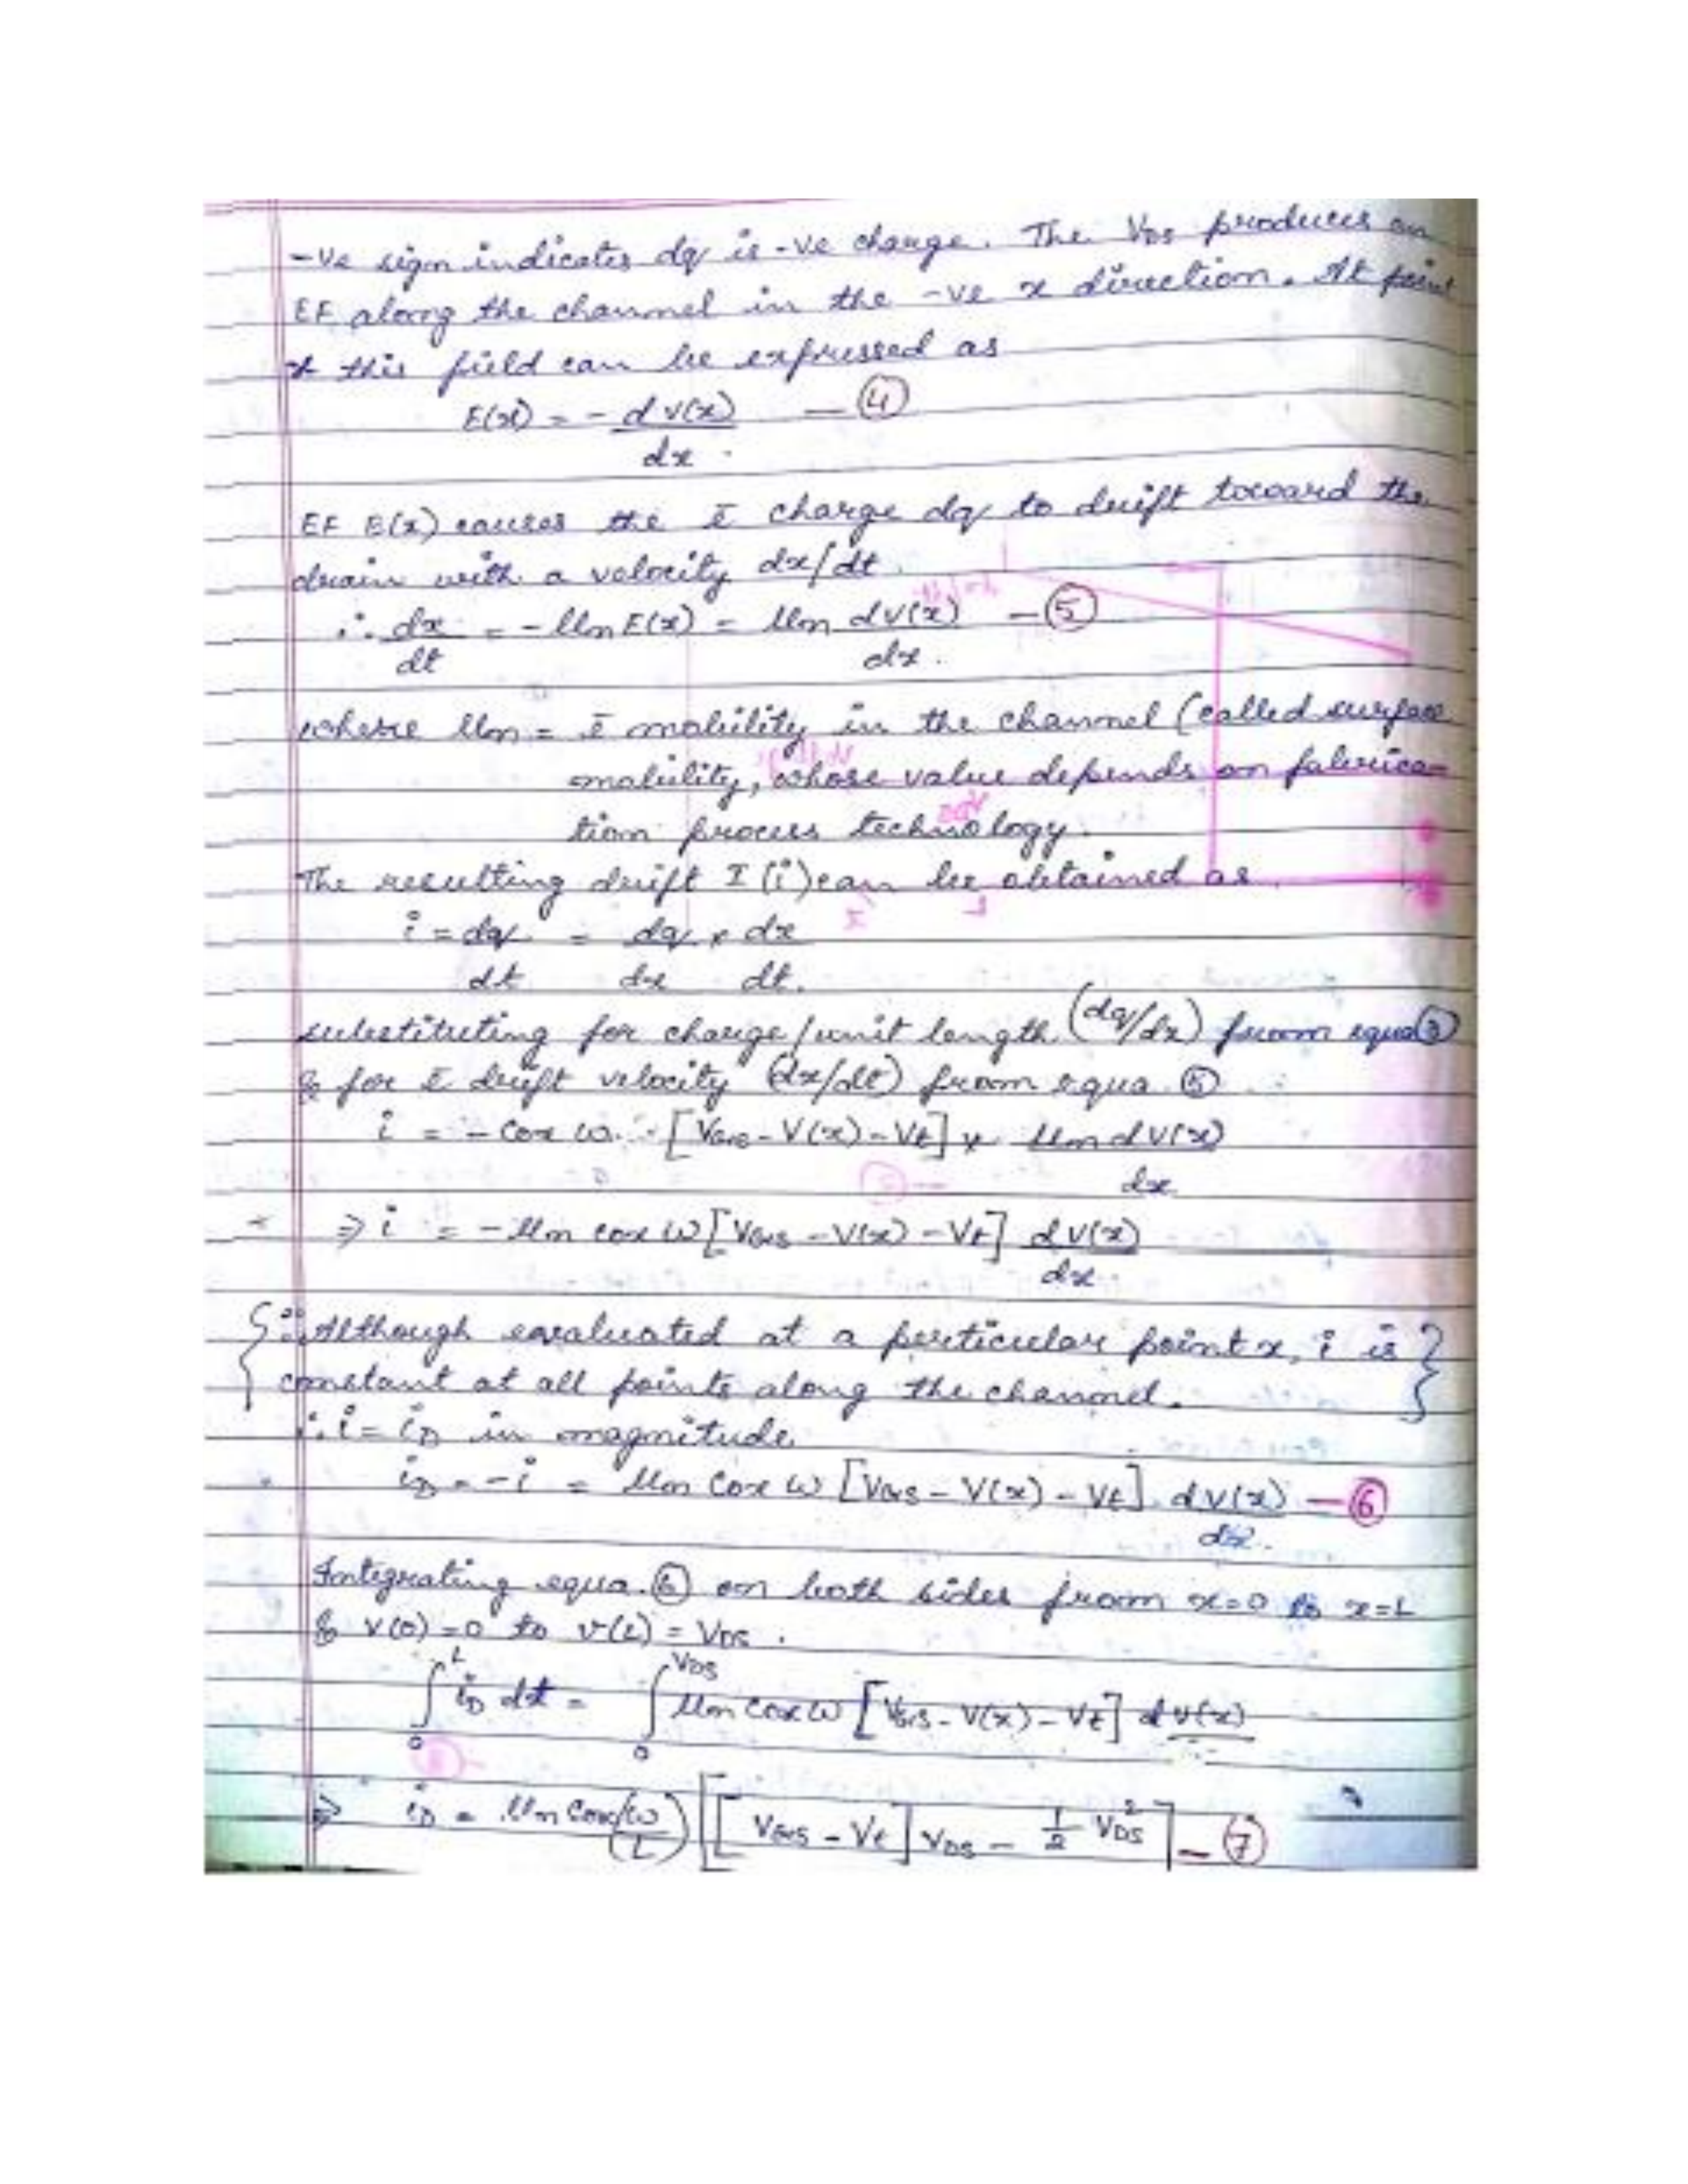 -ve sign indicates dq is -ve charge. The VDS produces an
EF along the channel in the -ve x direction. At point
x this field can be expressed as
E(x) = - dV(x) — ④
dx
EF E(x) causes the ē charge dq to drift toward the
drain with a velocity dx/dt
∴ dx = - μn E(x) = μn dV(x) — ⑤
dt dx.
where μn = ē mobility in the channel (called surface
mobility, whose value depends on fabrica-
tion process technology.
The resulting drift I (i) can be obtained as
i = dq = dq × dx
dt dx dt.
substituting for charge/unit length (dq/dx) from equa ③
& for ē drift velocity (dx/dt) from equa. ⑤
i = - Cox W. [VGS - V(x) - Vt] × μn dV(x)
dx
⇒ i = - μn Cox W [VGS - V(x) - Vt] dV(x)
dx
{ ∵ Although evaluated at a perticular point x, i is }
constant at all points along the channel.
∴ i = iD in magnitude.
iD = -i = μn Cox W [VGS - V(x) - Vt]. dV(x) — ⑥
dx.
Integrating equa. ⑥ on both sides from x=0 to x=L
& V(0) = 0 to V(L) = VDS.
∫₀ᴸ iD dx = ∫₀^VDS μn Cox W [VGS - V(x) - Vt] dV(x)
⇒ iD = μn Cox (W/L) [[VGS - Vt] VDS - 1/2 VDS²] — ⑦